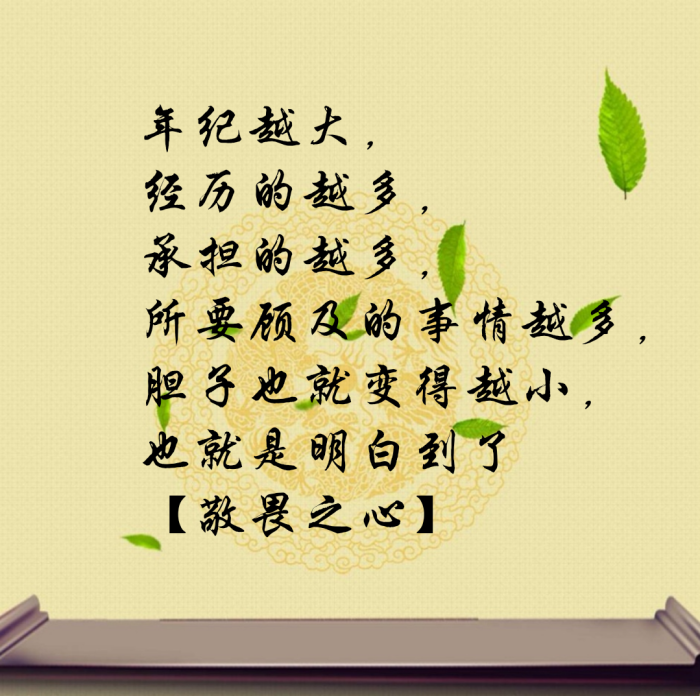 年纪越大，
经历的越多，
承担的越多，
所要顾及的事情越多，
胆子也就变得越小，
也就是明白到了
【敬畏之心】